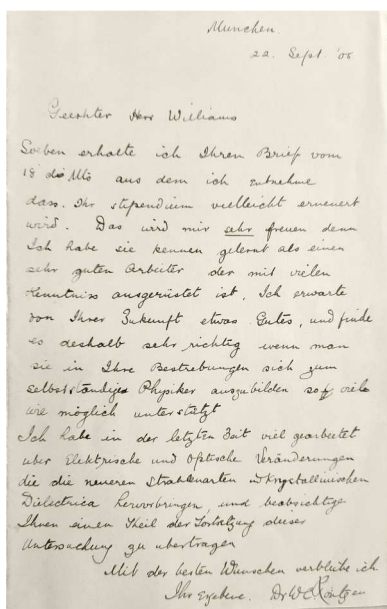 München.
22. Sept. '06
Geehrter Herr Williams
Soeben erhalte ich Ihren Brief vom
18 des Mts aus dem ich entnehme
dass. Ihr stipendium vielleicht erneuert
wird. Das wird mir sehr freuen denn
Ich habe sie kennen gelernt als einen
sehr guten Arbeiter der mit vielen
Kenntniss ausgerüstet ist. Ich erwarte
von Ihrer Zukunft etwas Gutes, und finde
es deshalb sehr richtig wenn man
sie in Ihre Bestrebungen sich zum
selbstständigen Physiker auszubilden so viele
wie möglich unterstützt
Ich habe in der letzten Zeit viel gearbeitet
uber Elektrische und optische Veränderungen
die die neueren Strahlenarten in krystallinischen
Dielectrica hervorbringen, und beabsichtige
Ihnen einen Theil der Fortsetzung dieser
Untersuchung zu ubertragen
Mit der besten Wunschen verbleibe ich
Ihr Ergebene. Dr W C Röntgen